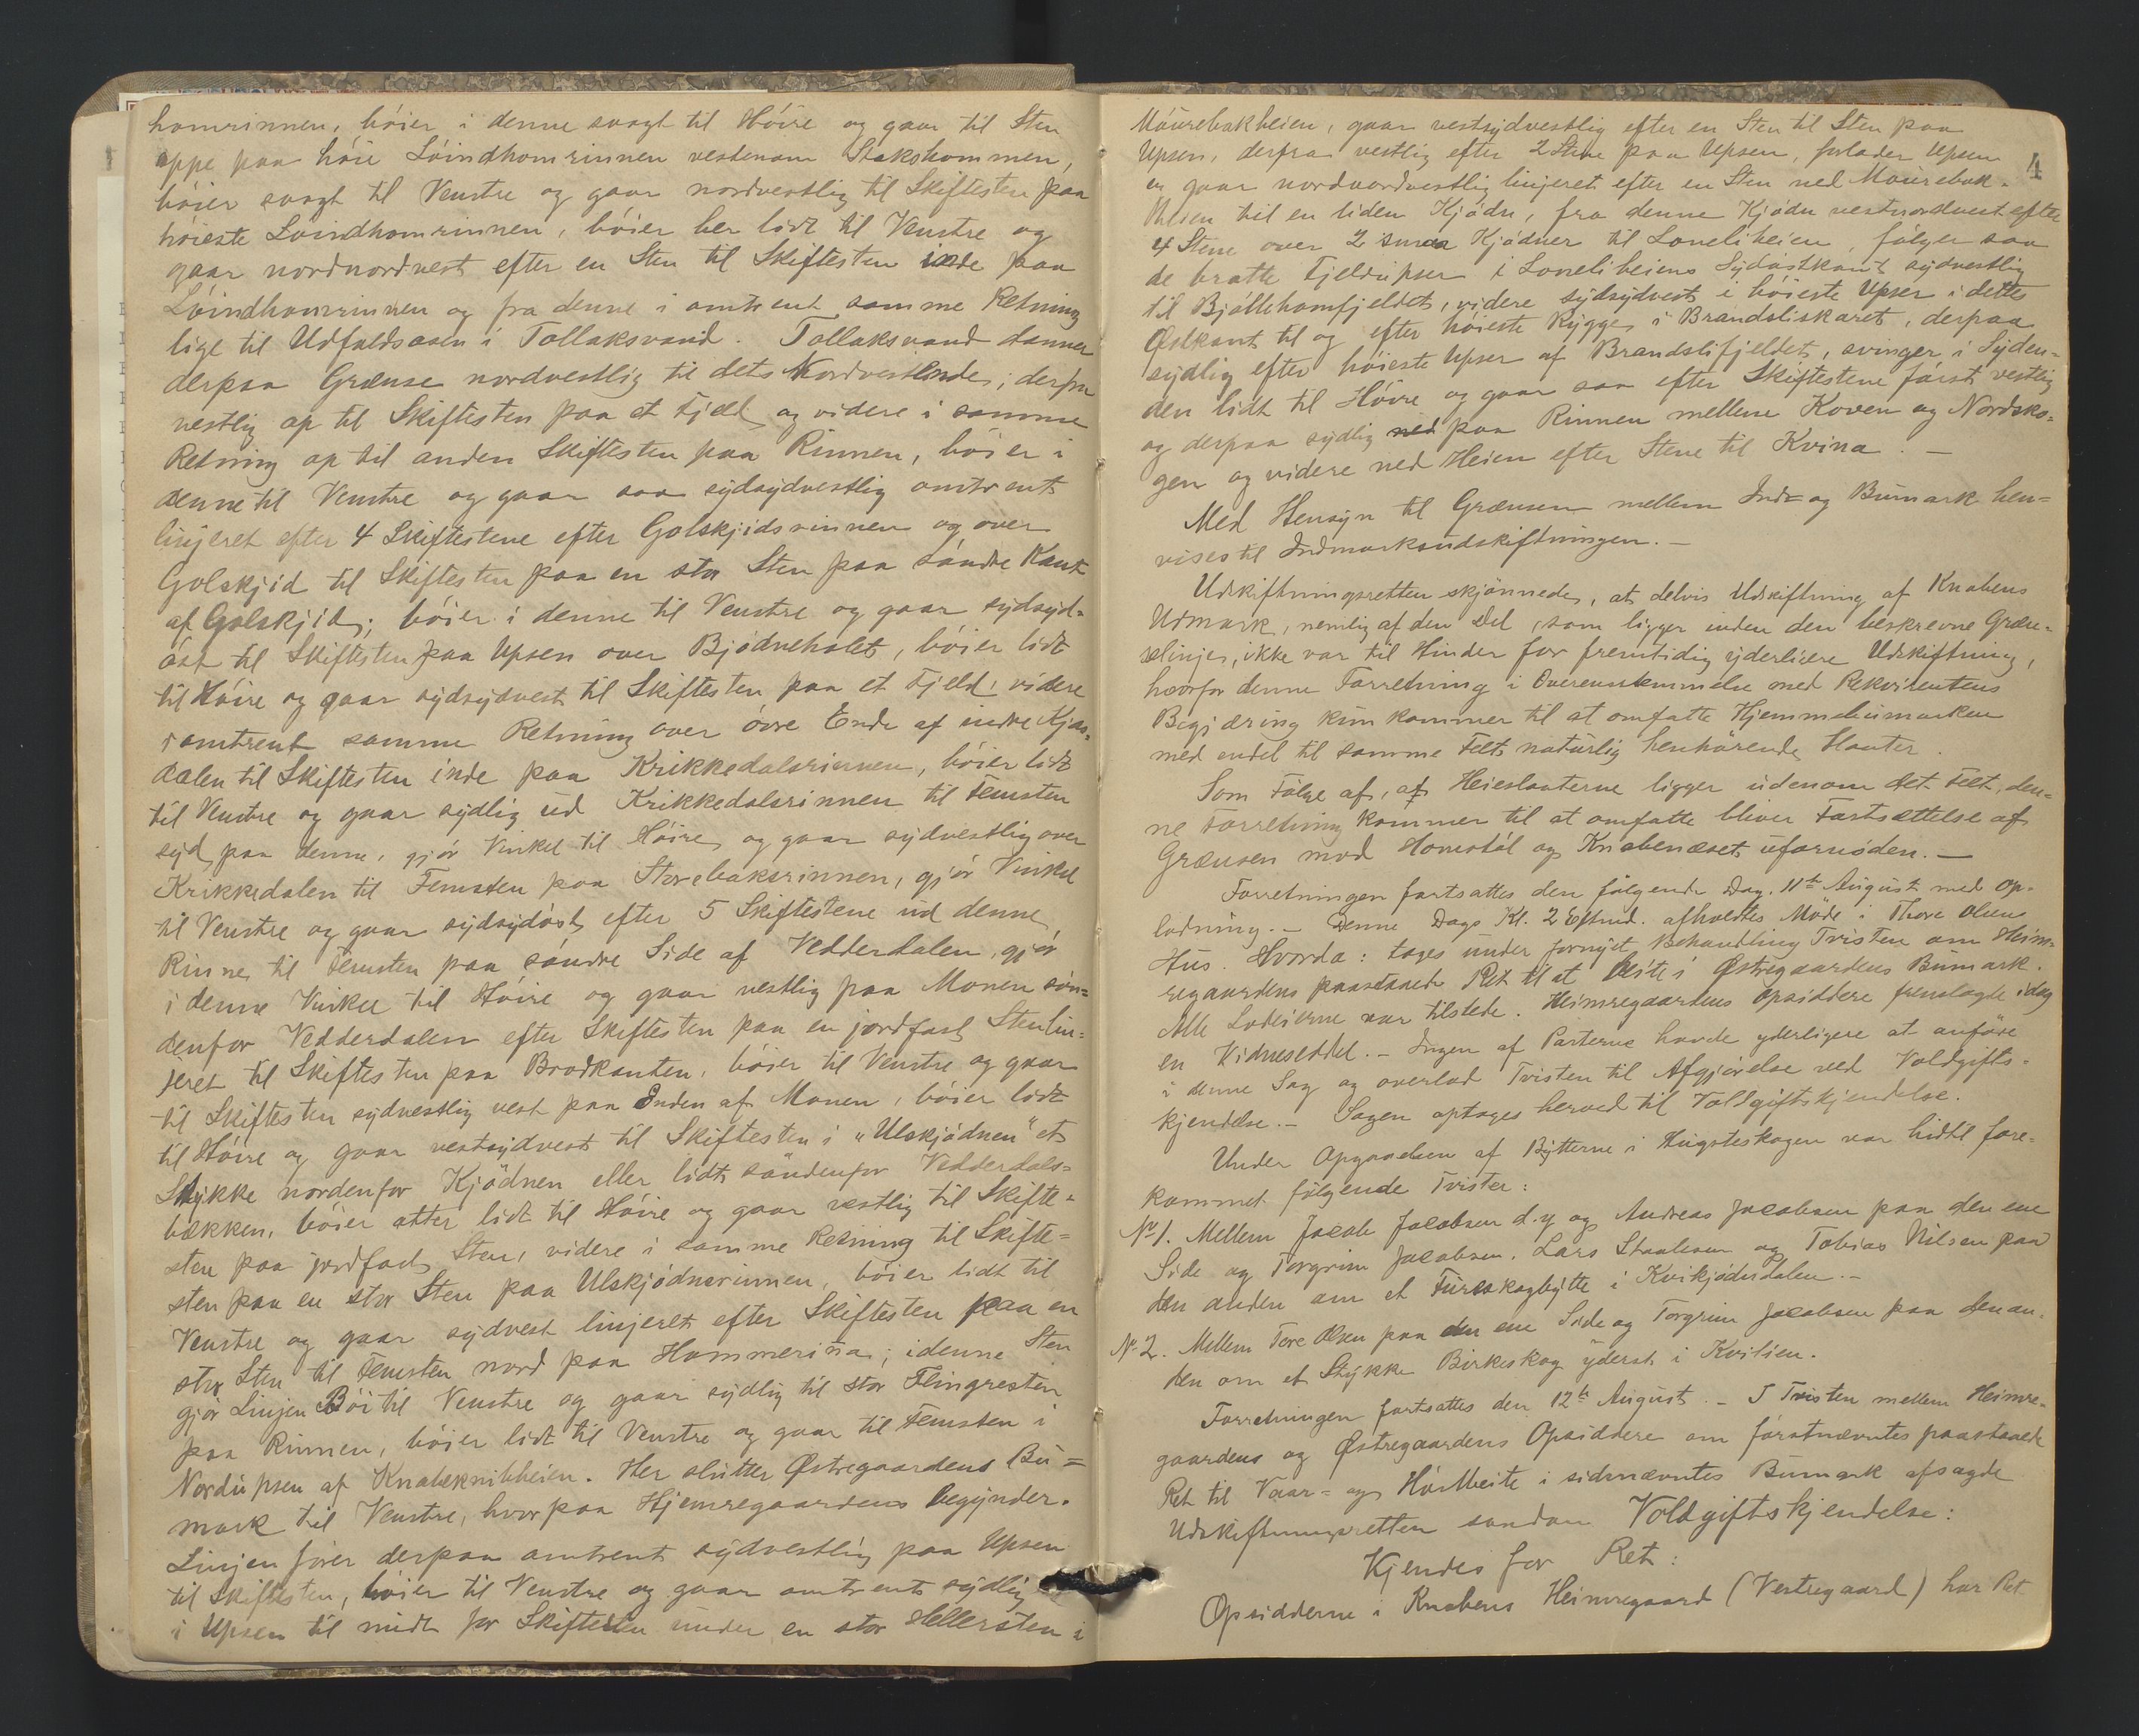 homrinnen, bóier i denne svagt til Hóire og gaar til Sten
oppe paa hóie Lóindhomrinnen vestenom Stakshommen,
bóier svagt til Venstre og gaar nordvestlig til Skiftesten paa
hóieste Lóindhomrinnen, bóier her lidt til Venstre og
gaar nordnordvest efter en Sten til Skiftesten inde paa
Lóindhomrinnen og fra denne i omtrent samme Retning
lige til Udfaldsosen i Tollaksvand. Tollaksvand danner
derpaa Grænse nordvestlig til dets Nordvestende; derfra
vestlig op til Skiftesten paa et Fjeld og videre i samme
Retning op til anden Skiftesten paa Rinnen, bóier i
denne til Venstre og gaar saa sydsydvestlig omtrent
linjeret efter 4 Skiftestene efter Golskjidsrinnen og over
Golskjid til Skiftesten paa en stor Sten paa sóndre Kant
af Golskjid; bóier i denne til Venstre og gaar sydsyd-
óst til Skiftesten paa Upsen over Bjódneholet, bóier lidt
til Hóire og gaar sydsydvest til Skiftesten paa et Fjeld, videre
i omtrent samme Retning over óvre Ende af indre Kjos-
dalen til Skiftesten inde paa Krikkedalsrinnen, bóier lidt
til Venstre og gaar sydlig ud Krikkedalsrinnen til Femsten
syd paa denne, gjór Vinkel til Hóire og gaar sydvestlig over
Krikkedalen til Femsten paa Storebaksrinnen, gjór Vinkel
til Venstre og gaar sydsydóst efter 5 Skiftestene ud denne
Rinne til Femsten paa sóndre Side af Vedderdalen, gjór
i denne Vinkel til Hóire og gaar vestlig paa Monen són-
denfor Vedderdalen efter Skiftesten paa en jordfast Sten lin-
jeret til Skiftesten paa Brodkanten, bóier til Venstre og gaar
til Skiftesten sydvestlig vest paa Enden af Monen, bóier lidt
til Hóire og gaar vestsydvest til Skiftesten i "Ulskjódnen" et
Stykke nordenfor Kjódnen eller lidt sóndenfor Vedderdals-
bækken, bóier atter lidt til Hóire og gaar vestlig til Skifte-
sten paa jordfast Sten, videre i samme Retning til Skifte-
sten paa en stor Sten paa Ulskjódnsrinnen, bóier lidt til
Venstre og gaar sydvest linjeret efter Skiftesten paa en
stor Sten til Femsten nord paa Hommerina; i denne Sten
gjór Linjen Bói til Venstre og gaar sydlig til stor Flingresten
paa Rinnen, bóier lidt til Venstre og gaar til Femsten i
Nordupsen af Knabeknibheien. Her slutter Østregaardens Bu-
mark til Venstre, hvorpaa Hjemregaardens begynder.
Linjen fórer derpaa omtrent sydvestlig paa Upsen
til Skiftesten, bóier til Venstre og gaar omtrent sydlig
i Upsen til midt for Skiftesten under en stor Hellersten i
4
Móurebakheien, gaar vestsydvestlig efter en Sten til Sten paa
Upsen, derfra vestlig efter 2 Stene paa Upsen, forlader Upsen
og gaar nordnordvestlig linjeret efter en Sten ned Móurebak-
til en liden Kjódn, fra denne Kjódn vestnordvest efter
4 Stene over 2 smaa Kjódner til Loneliheien, fólger saa
de bratte Fjeldupser i Loneliheiens Sydóstkant sydvestlig
til Bjóllehomfjeldet, videre sydsydvest i hóieste Upser i dettes
Østkant til og efter hóieste Rygge i Brandsliskaret, derpaa
sydlig efter hóieste Upser af Brandslifjeldet, svinger i Syden-
den lidt til Hóire og gaar saa efter Skiftestene fórst vestlig
og derpaa sydlig ned paa Rinnen mellem Koven og Nordsko-
gen og videre ned Heien efter Stene til Kvina. —
Med Hensyn til Grænsen mellem Ind- og Bumark hen-
vises til Indmarksudskiftningen. —
Udskiftningsretten skjónnede, at delvis Udskiftning af Knabens
Utmark, nemlig af den Del, som ligger inden den beskrevne Græn-
selinje, ikke var til Hinder for fremtidig yderligere Udskiftning,
hvorfor denne Forretning i Overensstemmelse med Rekvirentens
Begjæring kun kommer til at omfatte Hjemmebumarken
med endel til samme Felt naturlig henhórende Slaatter.
Som Fólge af, at Heieslaatterne ligger udenom det Felt, den-
ne Forretning kommer til at omfatte bliver Fortsættelse af
Grænsen mod Homstól og Knabenæset ufornóden. —
Forretningen fortsattes den fólgende Dag. 11te August med Op-
lodning. — Denne Dags Kl. 2 Eftmd. afholdtes Móde i Thore Olsens
Hus. Hvorda: toges under fornyet Behandling Tvisten om Heim-
regaardens paastaaede Ret til at beite i Østregaardens Bumark.
Alle Lodeierne var tilstede. Heimregaardens Opsiddere fremlagte idag
en Vidneseddel. — Ingen af Parterne havde yderligere at anfóre
i denne Sag og overlod Tvisten til Afgjórelse ved Voldgifts-
kjendelse. — Sagen optages herved til Voldgiftskjendelse.
Under Opgaaelsen af Bytterne i Hugsteskogen var hidtil fore-
kommet fólgende Tvister:
No 1. Mellem Jacob Jacobsen d.y. og Andreas Jacobsen paa den ene
Side og Torgrim Jacobsen, Lars Staalesen og Tobias Nilsen paa
den anden om et Fureskogbytte i Kvikjódndalen. —
No 2. Mellem Tore Olsen paa den ene Side og Torgrim Jacobsen paa den an-
den om et Stykke Birkeskog yderst i Kvilien.
Forretningen fortsattes den 12te August. — I Tvisten mellem Heimre-
gaardens og Østregaardens Opsiddere om fórstnævntes paastaaede
Ret til Vaar- og Hóstbeite i sidstnævntes Bumark afsagde
Udskiftningsretten saadan Voldgiftskjendelse:
Kjendes for Ret:
Opsidderne i Knabens Heimregaard (Vestregaard) har Ret